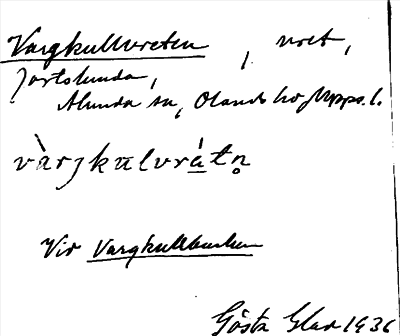 Vargkullvreten, vret,
Jortslunda,
Alunda sn, Olands hd Upps. l.
vàrjkulvrátn̥
Vid Vargkullbacken
Gösta Glad 1936